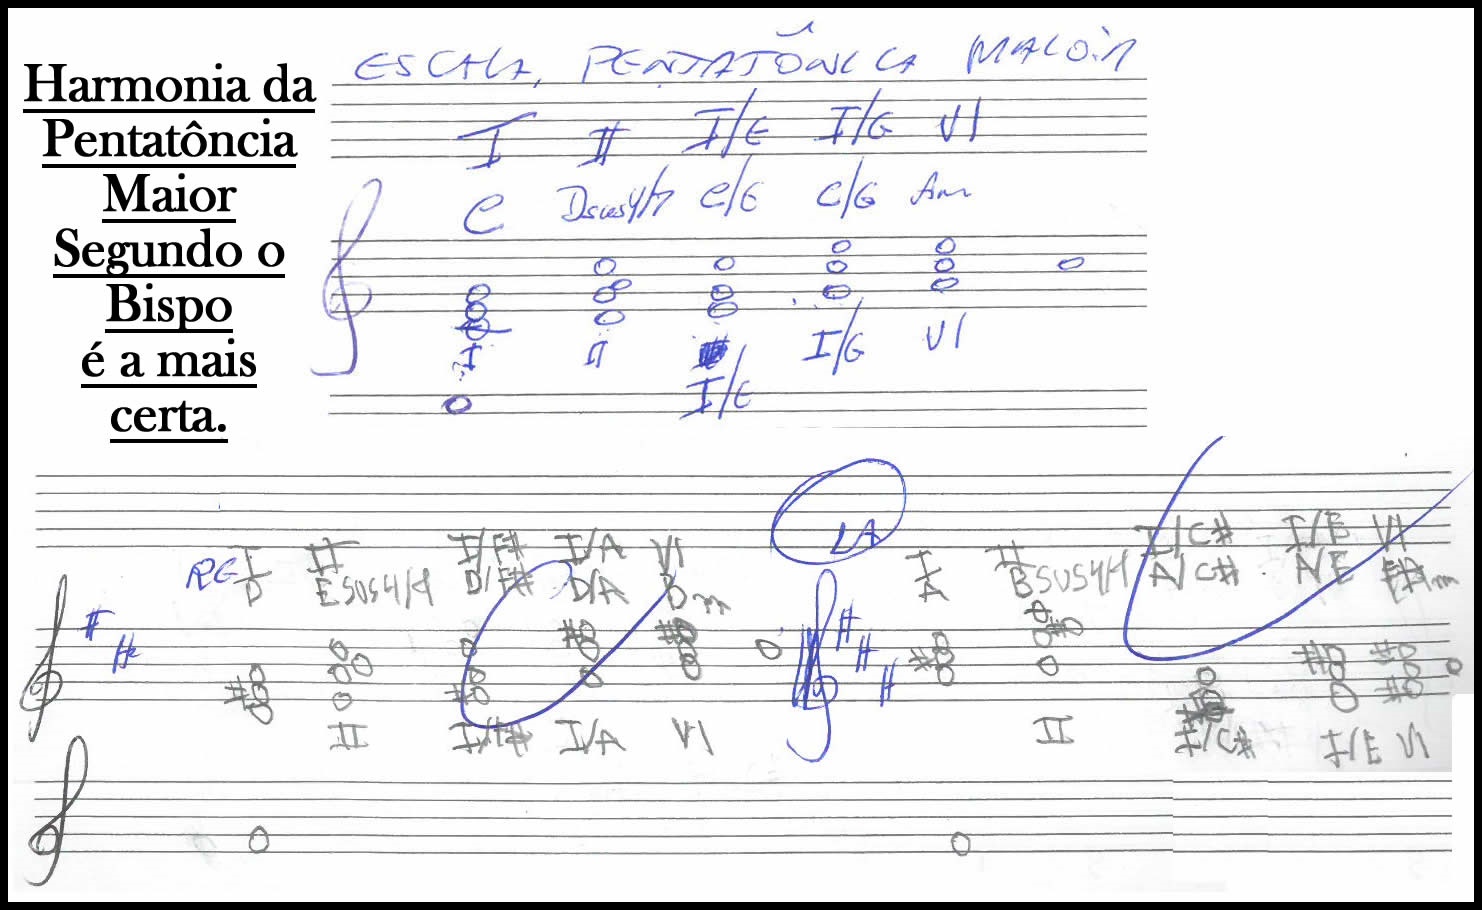 Harmonia da
Pentatôncia
Maior
Segundo o
Bispo
é a mais
certa.
ESCALA PENTATÔNICA MAIOR
I II I/E I/G VI
C Dsus4/7 C/E C/G Am
I II I/G VI
I/E
LA
I II I/F# I/A VI I II I/C# I/E VI
RE D Esus4/7 D/F# D/A Bm A Bsus4/7 A/C# A/E F#m
II I/F# I/A VI II I/C# I/E VI